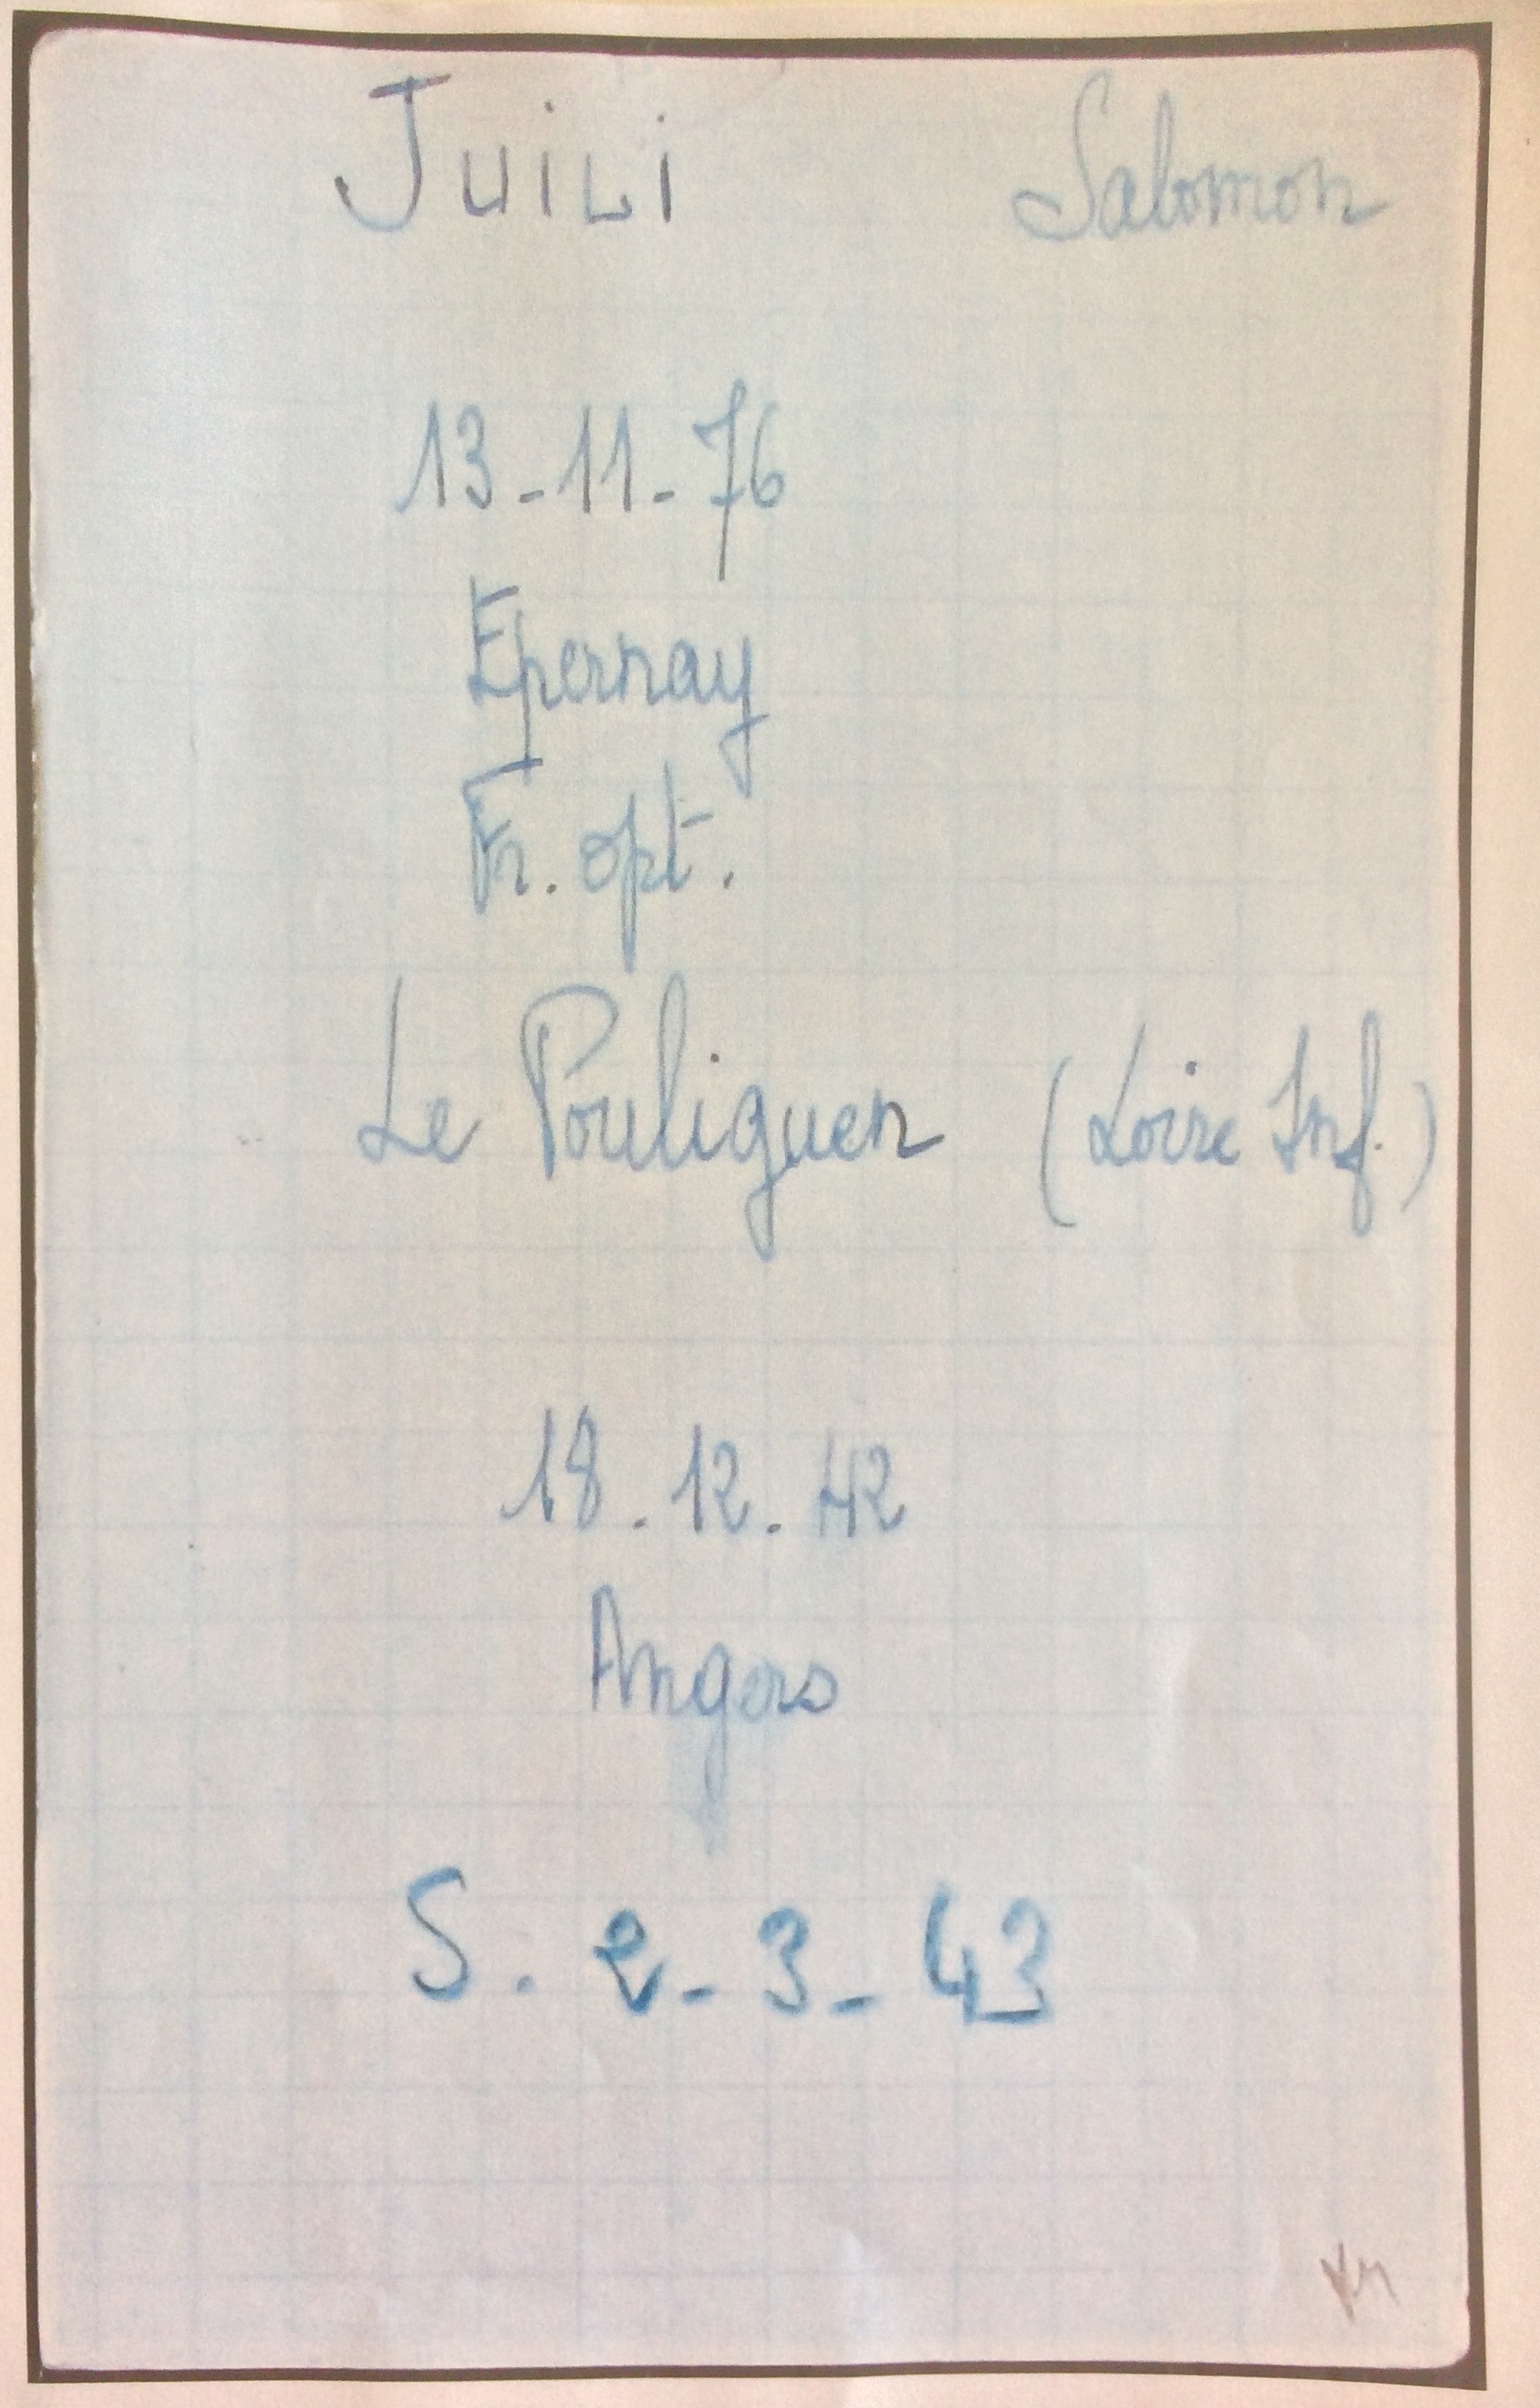 Juili Salomon
13-11-76
Epernay
Fr. opt.
Le Pouliguen (Loire Inf.)
18.12.42
Angers
S. 2-3-43